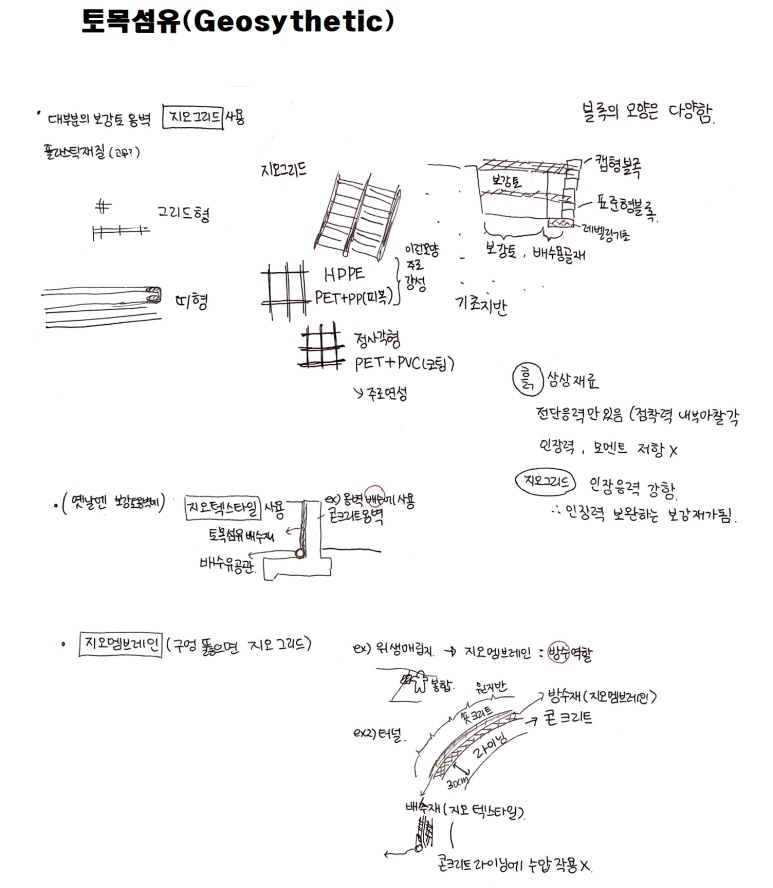 토목섬유(Geosythetic)
• 대부분의 보강토 옹벽 지오그리드 사용
플라스틱재질 (고무?)
그리드형
띠형
지오그리드
HDPE
PET+PP(피복)
이런모양
주로
강성
정사각형
PET+PVC(코팅)
↘ 주로연성
블록의 모양은 다양함.
캡형블록
보강토
표준형블록.
레벨링기초
보강토, 배수용골재
기초지반
흙 삼상재료
전단응력만있음 (점착력 내부마찰각
인장력, 모멘트 저항 X
지오그리드 인장응력 강함.
∴ 인장력 보완하는 보강재가됨.
• (옛날엔 보강토옹벽에) 지오텍스타일 사용
ex) 옹벽 배수에 사용
콘크리트옹벽
토목섬유배수재
배수유공관.
• 지오멤브레인 (구멍 뚫으면 지오그리드)
ex) 위생매립지 → 지오멤브레인 : 방수역할
봉합.
ex2) 터널.
원지반
숏크리트
방수재 (지오멤브레인)
콘크리트
라이닝
30cm
배수재 (지오텍스타일)
콘크리트라이닝에 수압 작용 X.